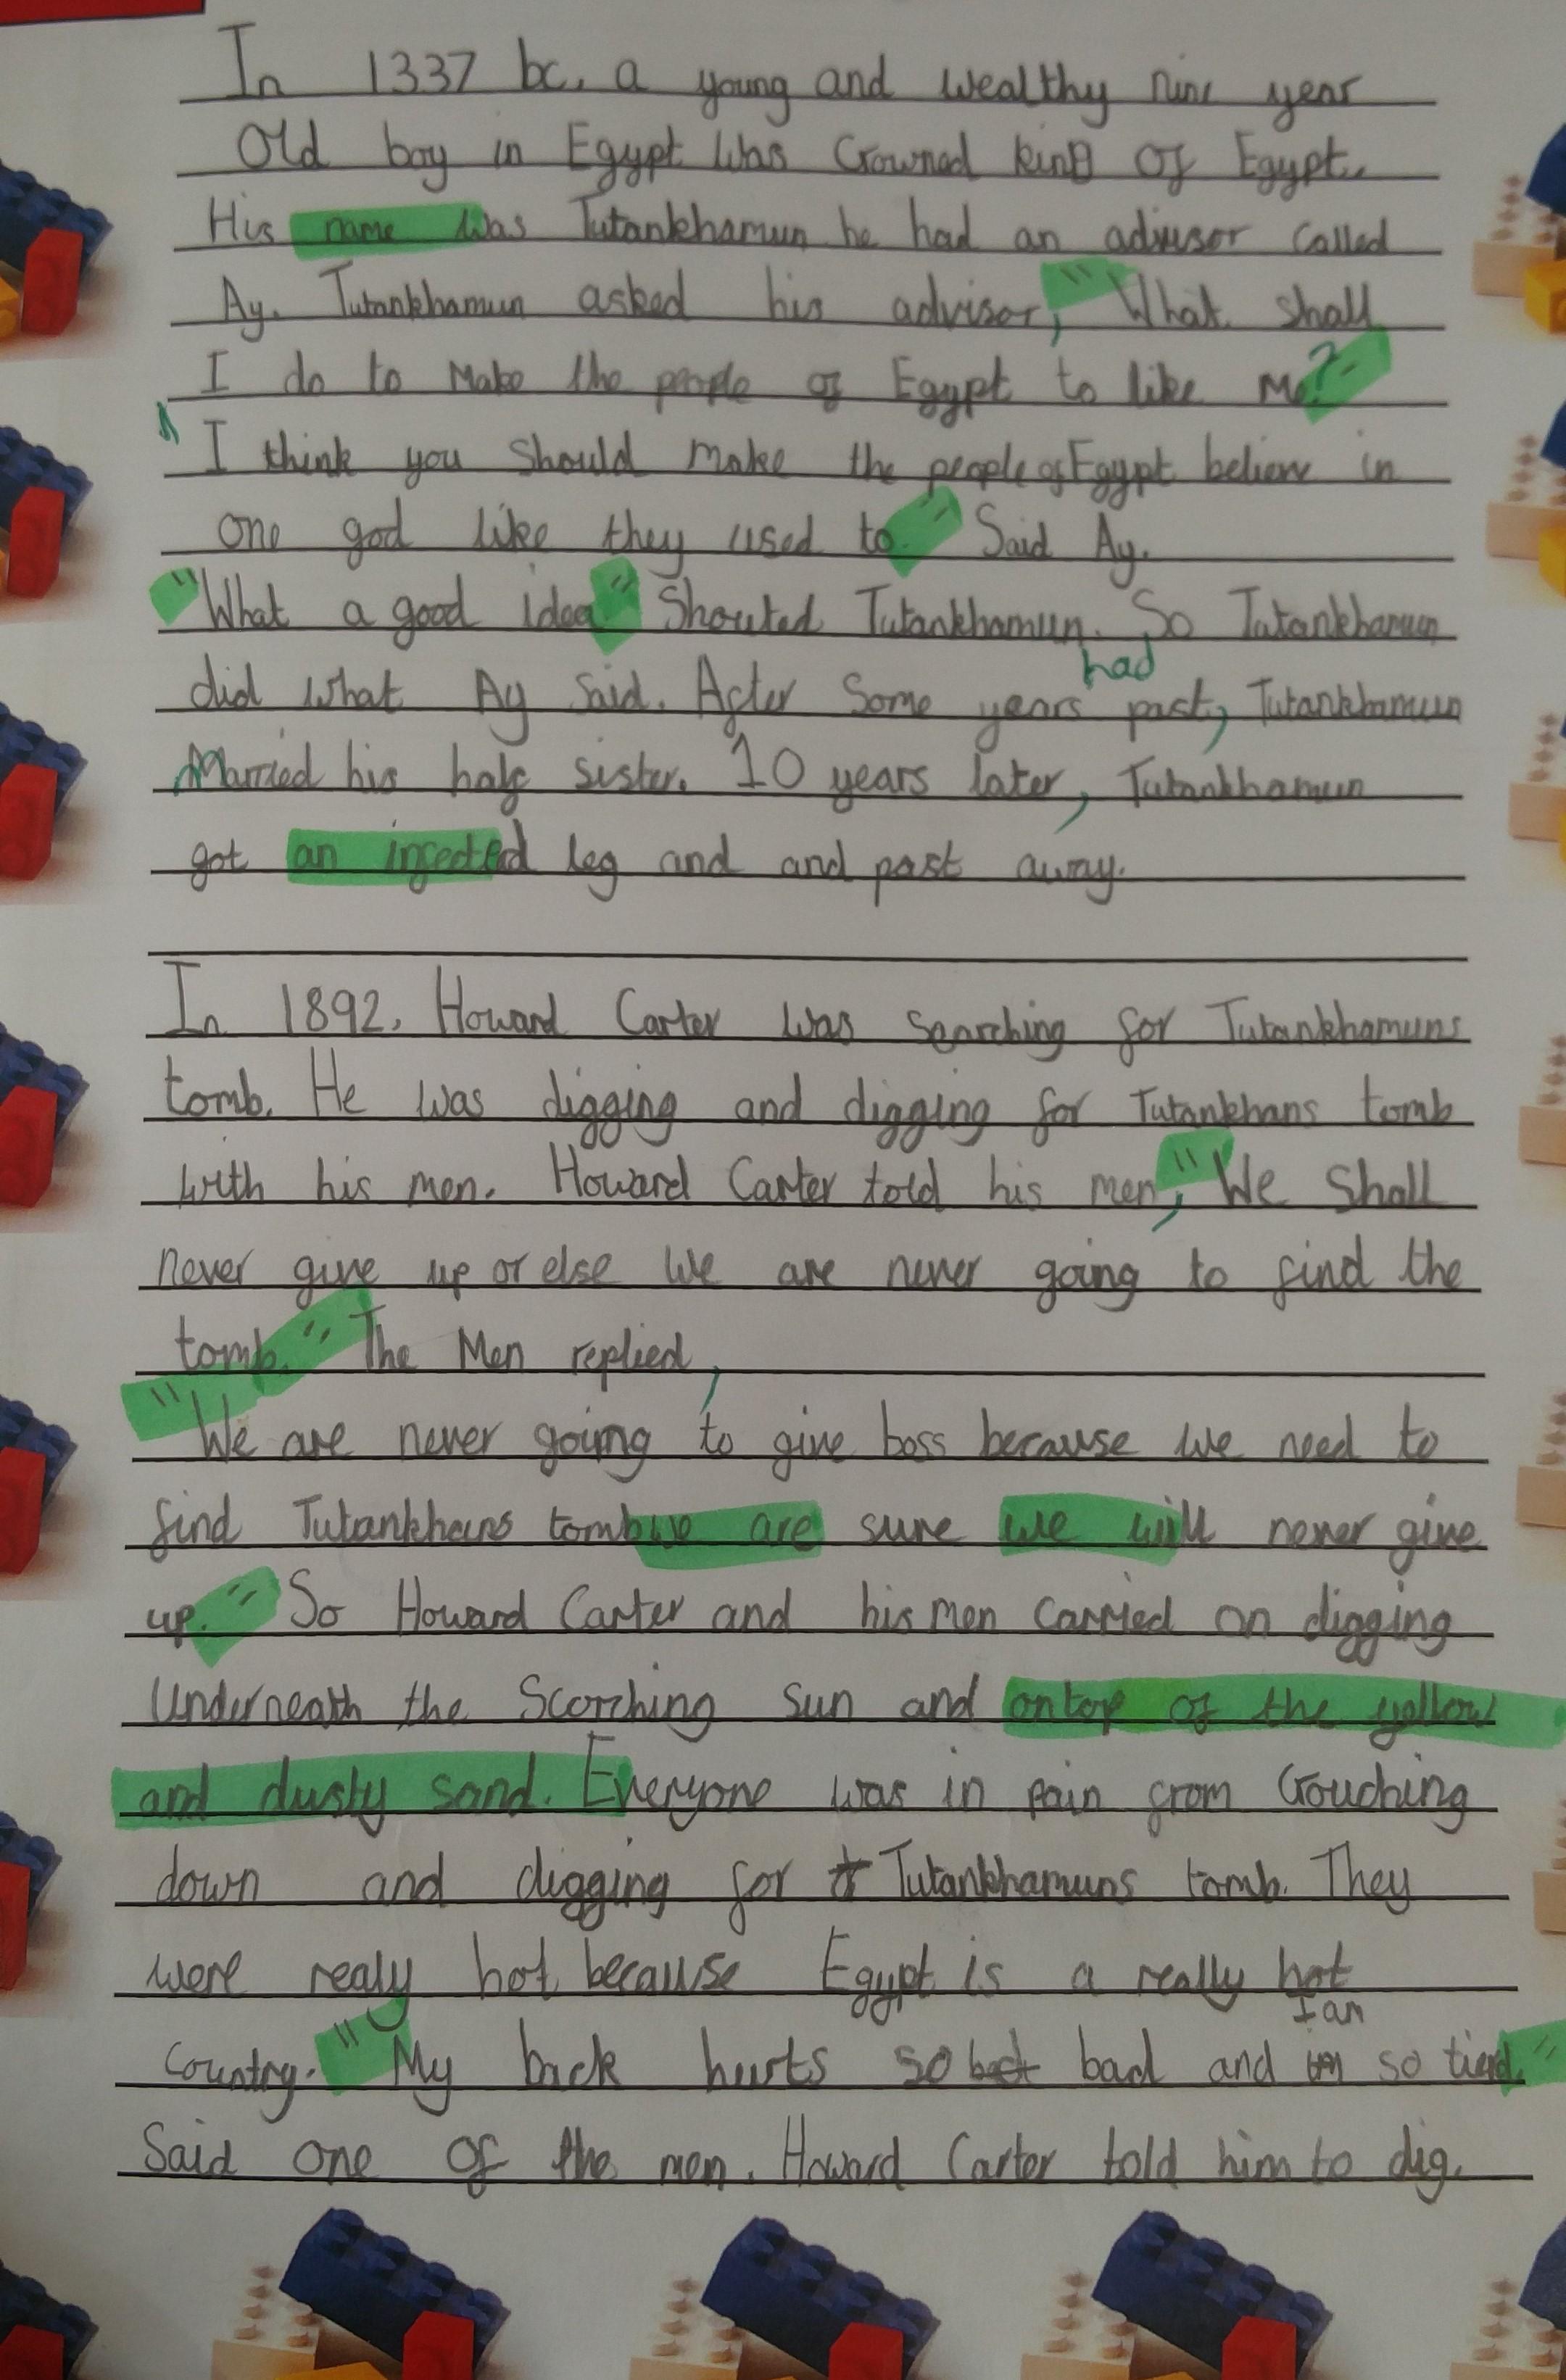 In 1337 bc, a young and wealthy nine year
Old boy in Egypt was Crowned king Of Egypt.
His name was Tutankhamun he had an advisor called
Ay. Tutankhamun asked his advisor, "What shall
I do to Make the people of Egypt to like Me?"
" I think you should make the people of Egypt believe in
one god like they used to." Said Ay.
"What a good idea" Shouted Tutankhamun. So Tutankhamun
did what Ay said. After Some years had past, Tutankhamun
Married his half sister. 10 years later, Tutankhamun
got an infected leg and and past away.
In 1892, Howard Carter was searching for Tutankhamuns
tomb. He was digging and digging for Tutankhans tomb
with his men. Howard Carter told his men, "We Shall
never give up or else we are never going to find the
tomb." The Men replied,
"We are never going to give boss because we need to
find Tutankhans tomb we are sure we will never give
up." So Howard Carter and his men carried on digging
Underneath the Scorching sun and ontop of the yellow
and dusty sand. Everyone was in pain from Crouching
down and digging for Tutankhamuns tomb. They
were realy hot because Egypt is a really hot
Country. "My back hurts so bad and I am so tierd."
Said one of the men. Howard Carter told him to dig.